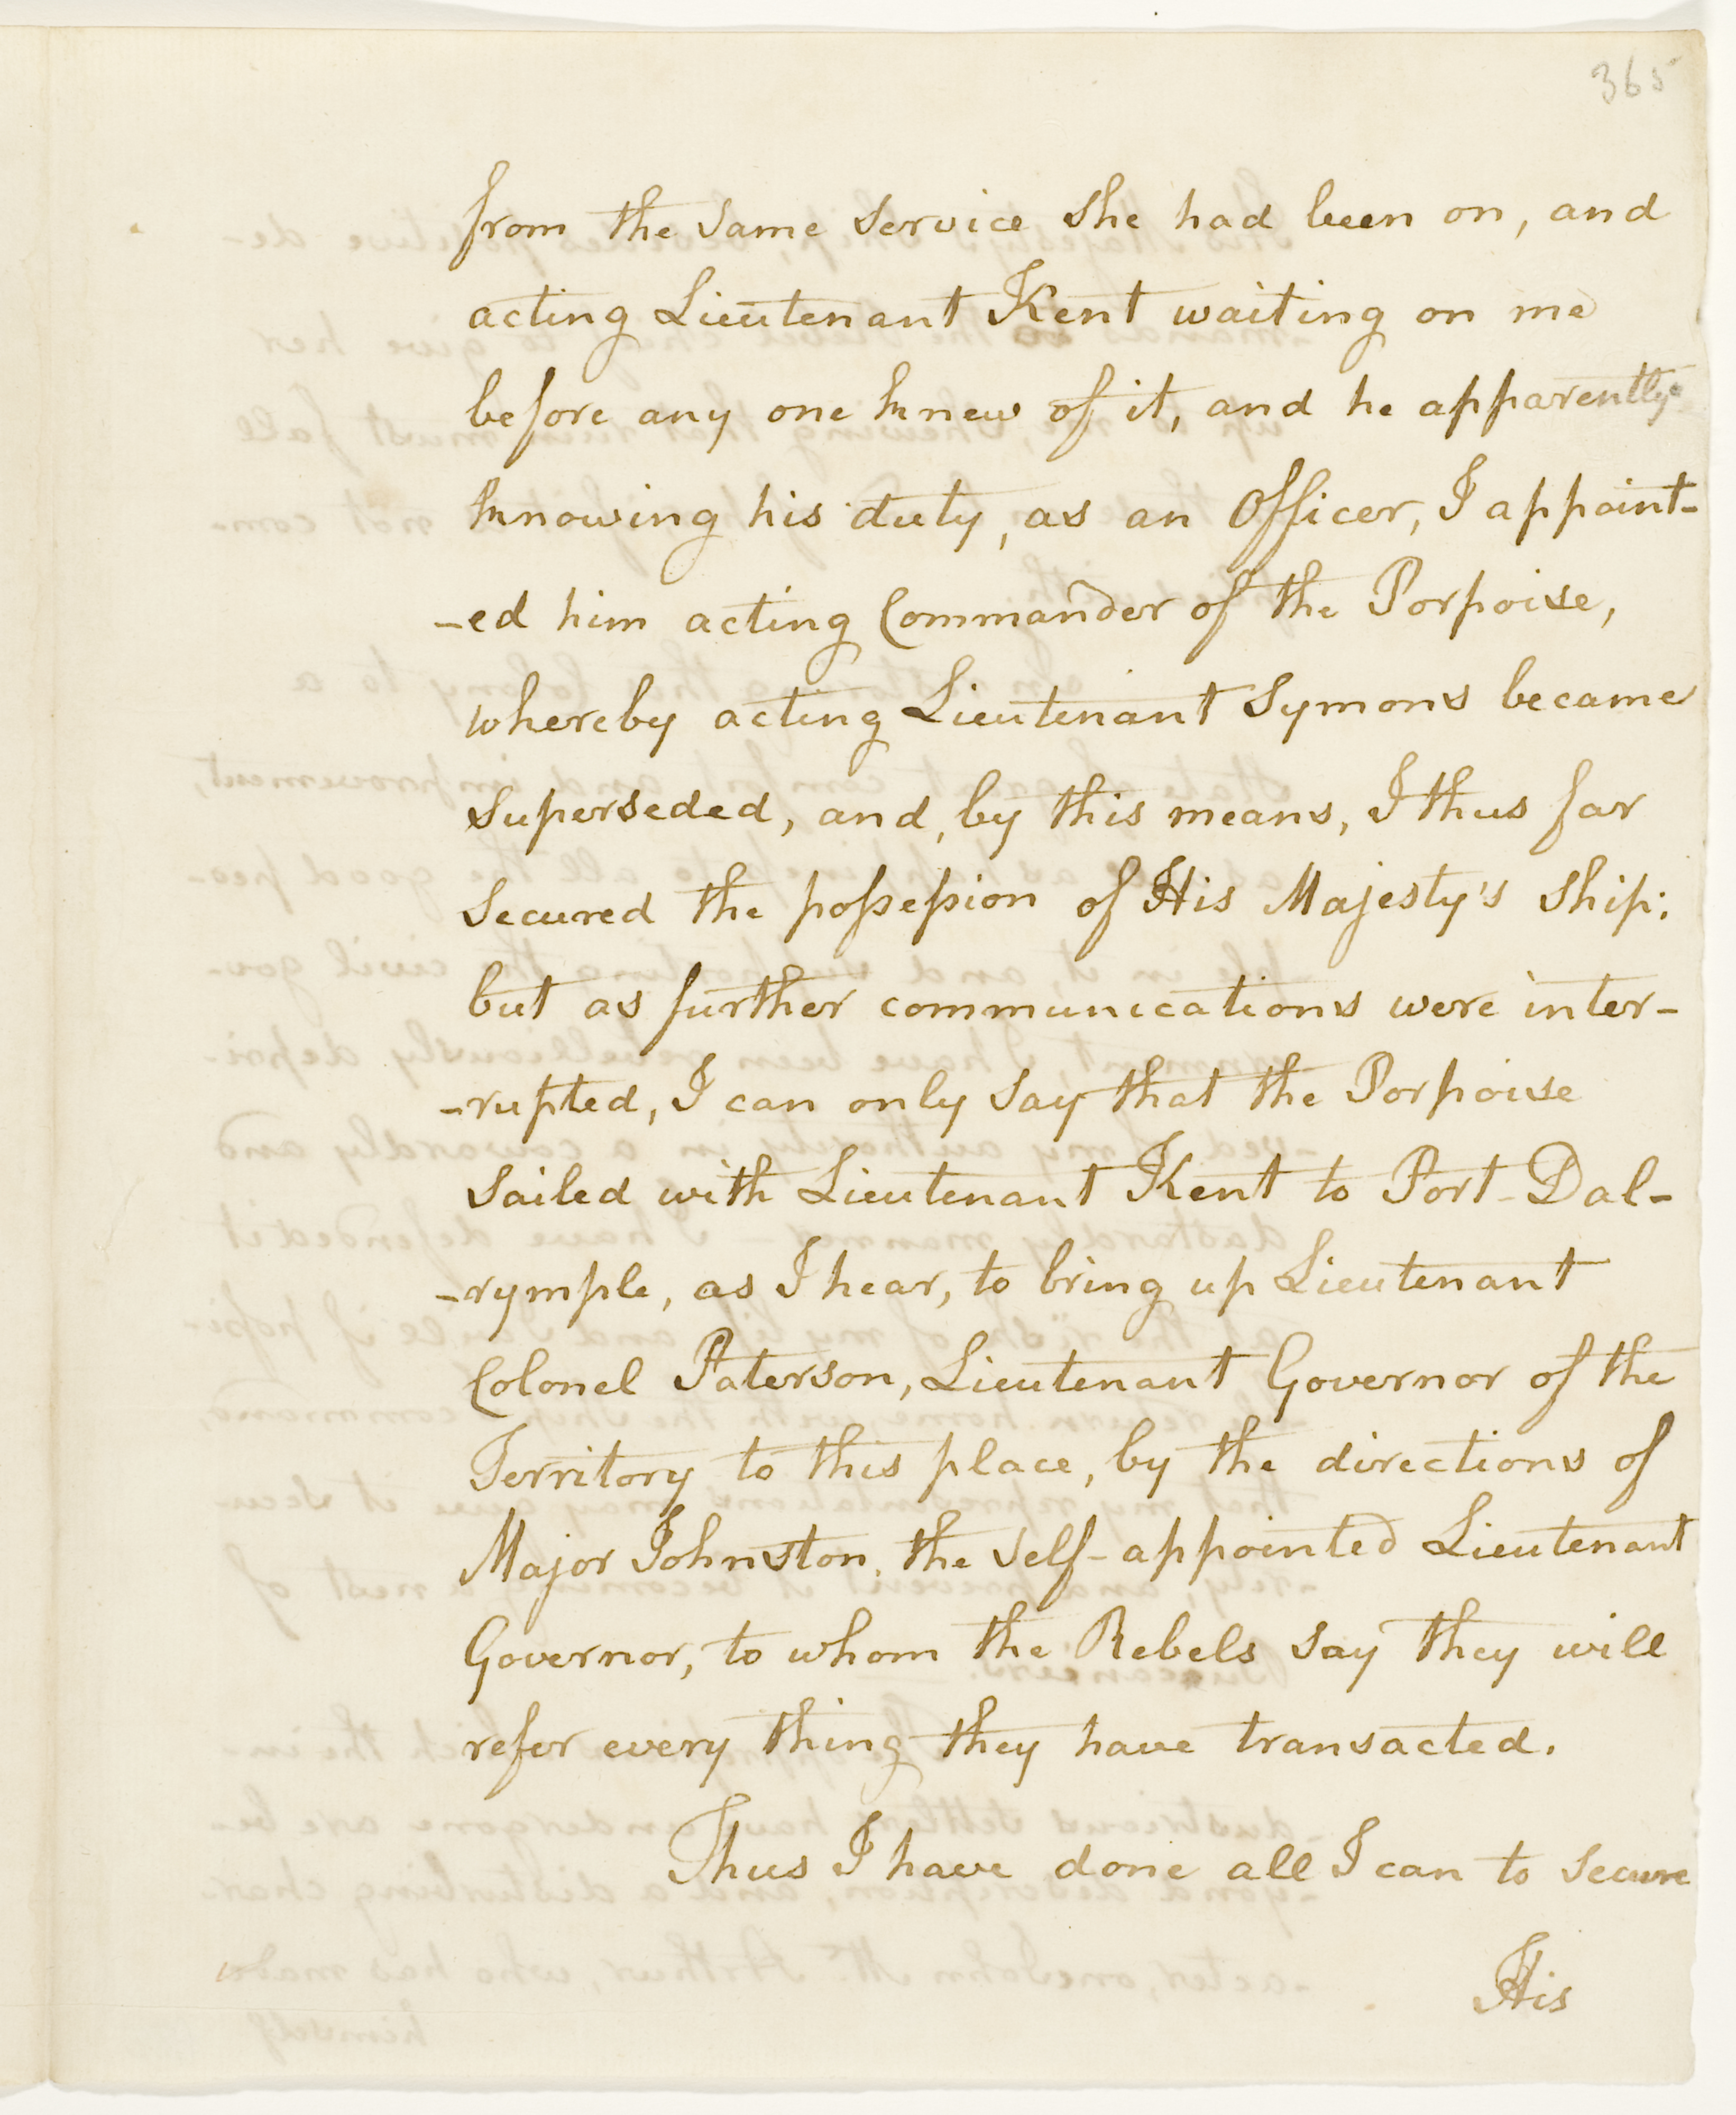 365
from the same service she had been on, and
acting Lieutenant Kent waiting on me
before any one knew of it, and he apparently
knowing his duty, as an Officer, I appoint-
-ed him acting Commander of the Porpoise,
whereby acting Lieutenant Symons became
superseded, and, by this means, I thus far
secured the possession of His Majesty's Ship;
but as further communications were inter-
-rupted, I can only say that the Porpoise
sailed with Lieutenant Kent to Port-Dal-
-rymple, as I hear, to bring up Lieutenant
Colonel Paterson, Lieutenant Governor of the
Territory to this place, by the directions of
Major Johnston, the self-appointed Lieutenant
Governor, to whom the Rebels say they will
refer every thing they have transacted.
Thus I have done all I can to secure
His